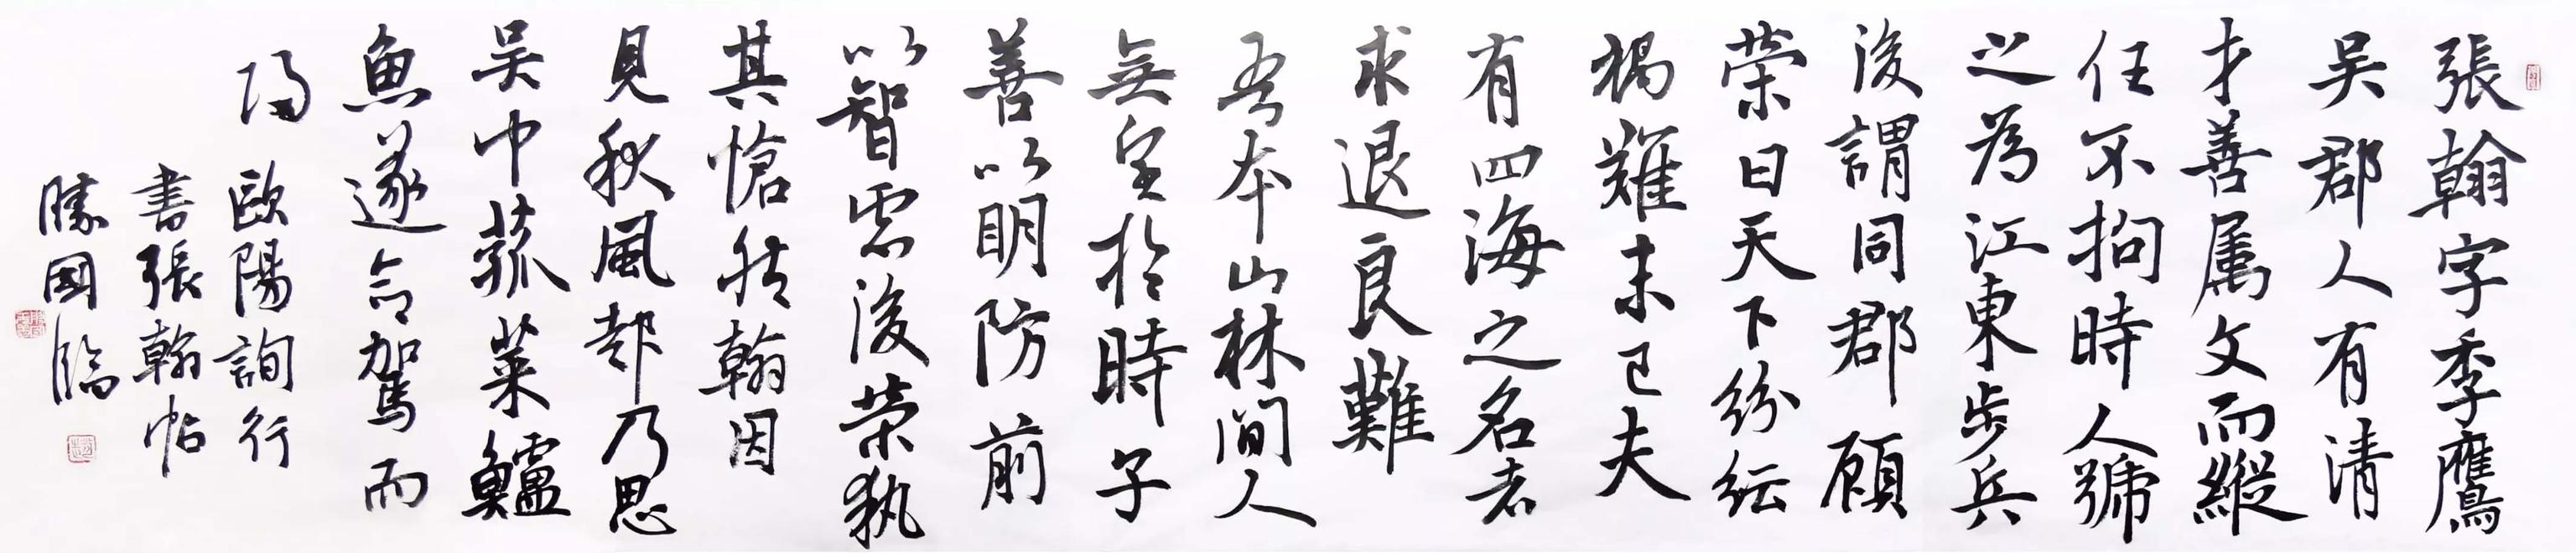 張翰字季鷹
吴郡人有清
才善属文而縱
任不拘時人號
之為江東步兵
後謂同郡顧
荣曰天下紛紜
禍難未已夫
有四海之名者
求退良難
吾本山林間人
無望於時子
善以明防前
以智慮後荣執
其愴然翰因
見秋風起乃思
吴中菰菜鱸
魚遂命駕而
歸
歐陽詢行
書張翰帖
勝國臨